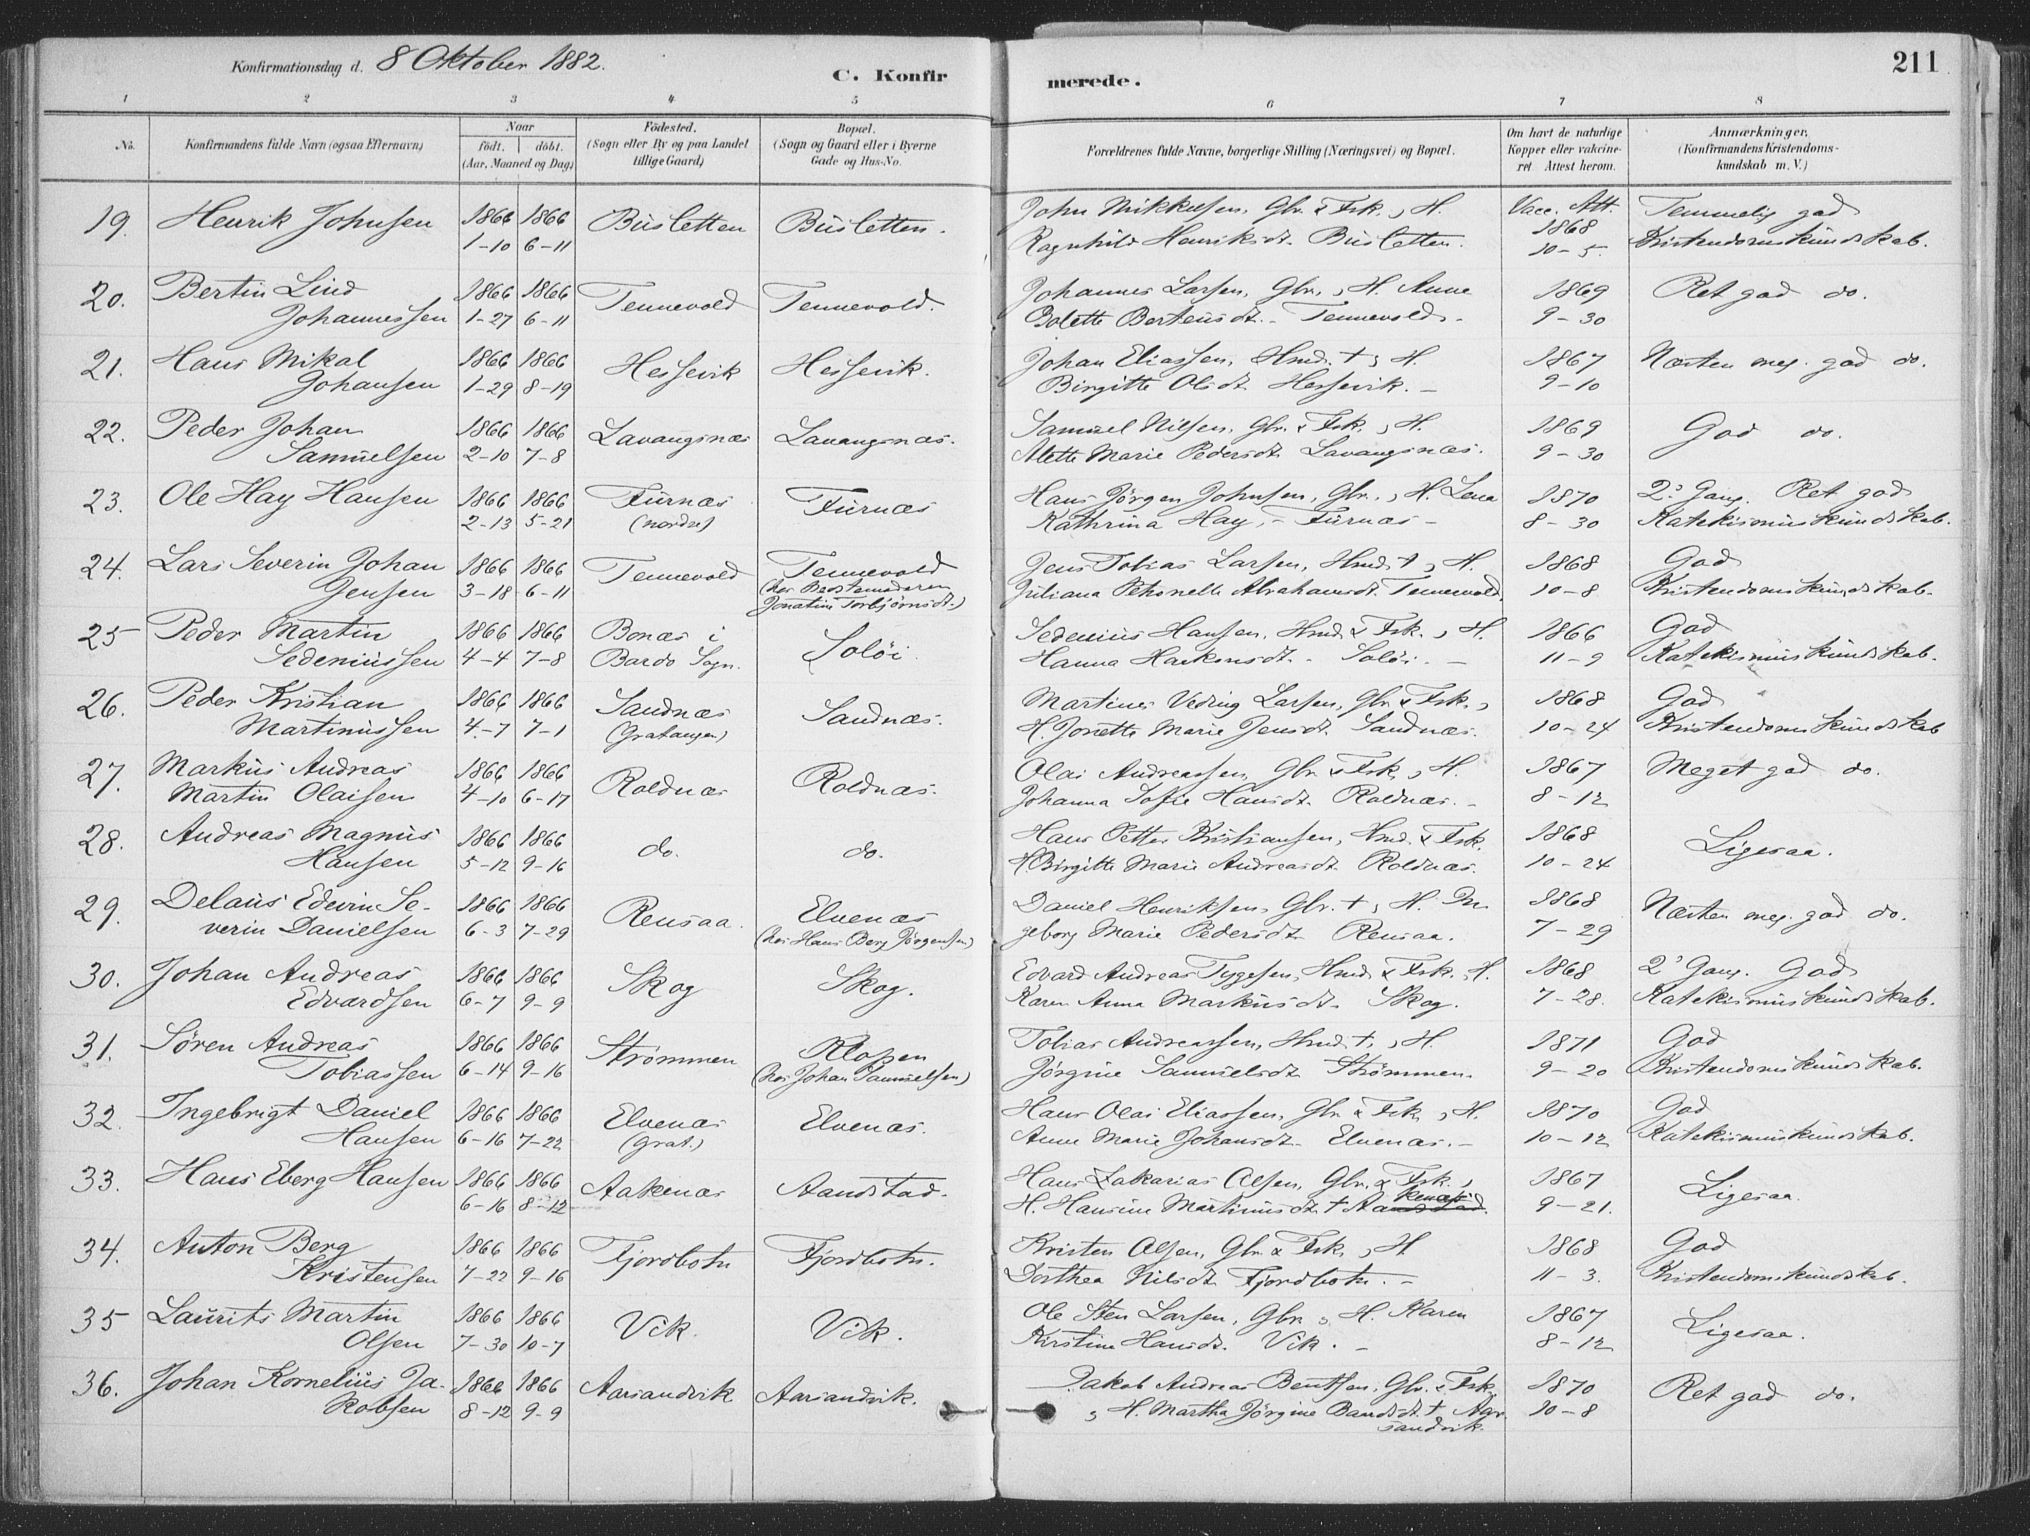 Konfirmationsdag d. 8 Oktober 1882.
C. Konfirmerede.
211
1 2 3 4 5 6 7 8
No. Konfirmandens fulde Navn (ogsaa Efternavn) Naar født. døbt. (Aar, Maaned og Dag) Fødested. (Sogn eller By og paa Landet tillige Gaard) Bopæl. (Sogn og Gaard eller i Byerne Gade og Hus-No. Forældrenes fulde Navne, borgerlige Stilling (Næringsvei) og Bopæl. Om havt de naturlige Kopper eller vakcineret. Attest herom. Anmærkninger. (Konfirmandens Kristendomskundskab m. V.)
19. Henrik Johnsen 1866 1866 Büsletten Büsletten. John Mikkelsen, Gbr. & Fsk., H. Vacc. Att. Temmelig god
1-10 6-11 Ragnhild Henriksdt. Büsletten. 1868 10-5. Kristendomskundskab.
20. Bertin Lind 1866 1866 Tennevold Tennevold. Johannes Larsen, Gbr., H. Anne 1869 Ret god do.
Johannessen 1-27 6-11 Bolette Berteusdt. Tennevold. 9-30
21. Hans Mikal 1866 1866 Hessevik Hessevik. Johan Eliassen, Hmd. †, H. 1867 Næsten meg. god do.
Johansen 1-29 8-19 Birgitte Olsdt. Hessevik. 9-10
22. Peder Johan 1866 1866 Lavangsnæs Lavangsnæs. Samuel Nilsen, Gbr. & Fsk., H. 1869 God do.
Samuelsen 2-10 7-8 Alette Marie Pedersdt. Lavangsnæs. 9-30
23. Ole Hay Hansen 1866 1866 Fürnæs Fürnæs Hans Jörgen Johnsen, Gbr., H. Lena 1870 2. Gang. Ret god
2-13 5-21 (nordre) Kathrina Hay, Fürnæs 8-30 Katekismuskundskab.
24. Lars Severin Johan 1866 1866 Tennevold Tennevold Jens Tobias Larsen, Hmd. †, H. 1868 God
Jensen 3-18 6-11 (hos Bestemoderen Juliana Petronelle Abrahamsdt. Tennevold. 10-8 Kristendomskundskab.
Jonatine Torbjørnsdt.)
25 Peder Martin 1866 1866 Bonæs i Soløi. Sedenius Hansen, Hmd. & Fsk., H. 1866 God
Sedeniussen 4-4 7-8 Bardo Sogn. Hanna Haikonsdt. Soløi. 11-9 Katekismuskundskab.
26. Peder Kristian 1866 1866 Sandnæs Sandnæs. Martines Veding Larsen, Gbr. & Fsk., 1868 God
Martinussen 4-7 7-1 (Gratangen) H. Jonette Marie Jensdt. Sandnæs. 10-24 Kristendomskundskab
27. Markus Andreas 1866 1866 Roldnæs Roldnæs. Olai Andreassen, Gbr. & Fsk., H. 1867 Meget god do.
Martin Olaisen 4-10 6-17 Johanna Sofie Hansdt. Roldnæs. 8-12
28. Andreas Magnus 1866 1866 do. do. Hans Petter Kristiansen, Hmd. & Fsk. 1868 Ligesaa.
Hansen 5-12 9-16 H. Birgitte Marie Andreasdt. Roldnæs. 10-24
29. Delaus Edevin Se- 1866 1866 Rensaa. Elvenæs Daniel Henriksen, Gbr. †, H. In 1868 Næsten meg. god do.
verin Danielsen 6-3 7-29 (hos Hans Berg Jørgensen) geborg Marie Pedersdt. Rensaa. 7-29
30. Johan Andreas 1866 1866 Skog Skog. Edvard Andreas Tygesen, Hmd. & Fsk., H. 1868 2. Gang. God
Edvardsen 6-7 9-9 Karen Anna Markusdt. Skog. 7-28. Katekismuskundskab.
31. Søren Andreas 1866 1866 Strømmen Kloppen Tobias Andreassen, Hmd. †, H. 1871 God
Tobiassen 6-14 9-16 (hos Johan Samuelsen) Jørgine Samuelsdt. Strømmen. 9-20 Kristendomskundskab.
32. Ingebrigt Daniel 1866 1866 Elvenæs Elvenæs. Hans Olai Eliassen, Gbr. & Fsk., H. 1870 God
Hansen 6-16 7-22 (Grat.) Anne Marie Johansdt. Elvenæs. 10-12 Katekismuskundskab.
33. Hans Eberg Hansen 1866 1866 Aakenæs Aandstad. Hans Zakarias Olsen, Gbr. & Fsk., 1867 Ligesaa.
6-16 8-12 H. Hansine Martinusdt. † Aakenæs. 9-21.
34. Anton Berg 1866 1866 Fjordbotn Fjordbotn. Kristen Olsen, Gbr. & Fsk., H. 1868 God
Kristensen 7-22 9-16 Dorthea Nilsdt. Fjordbotn. 11-3. Kristendomskundskab.
35 Laurits Martin 1866 1866 Vik. Vik. Ole Sten Larsen, Gbr., H. Karen 1867 Ligesaa.
Olsen 7-30 10-7 Kirstine Hansdt. Vik. 8-12
36. Johan Kornelius Ja- 1866 1866 Aarsandvik Aarsandvik. Jakob Andreas Bentsen, Gbr. & Fsk. 1870 Ret god do.
kobsen 8-12 9-9 , H. Martha Jørgine Bandsdt. † Aar- 10-8
sandvik.